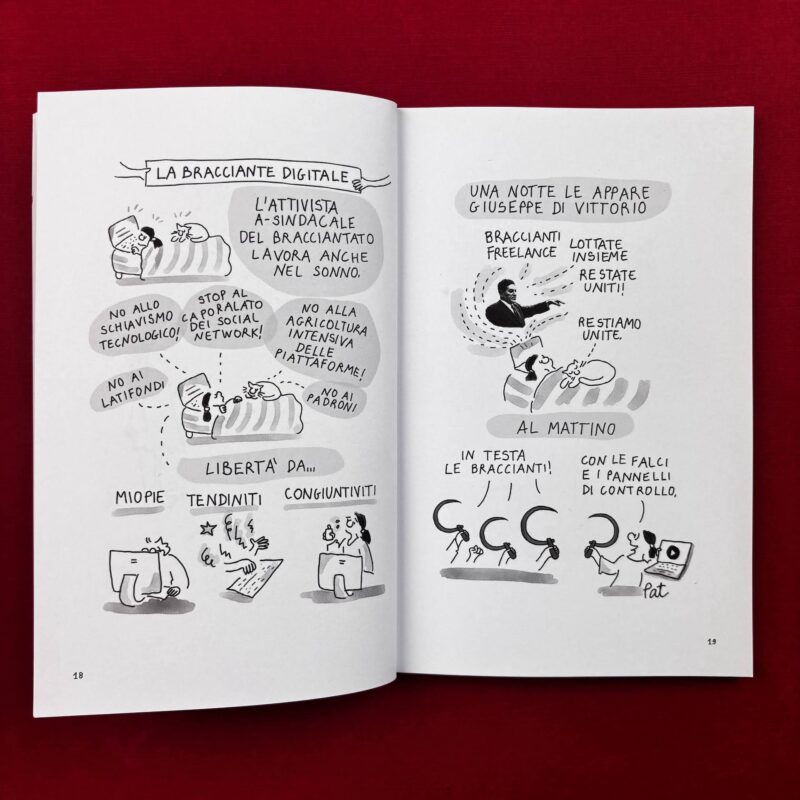 LA BRACCIANTE DIGITALE
L'ATTIVISTA
A-SINDACALE
DEL BRACCIANTATO
LAVORA ANCHE
NEL SONNO.
NO ALLO
SCHIAVISMO
TECNOLOGICO!
STOP AL
CAPORALATO
DEI SOCIAL
NETWORK!
NO ALLA
AGRICOLTURA
INTENSIVA
DELLE
PIATTAFORME!
NO AI
LATIFONDI
NO AI
PADRONI
LIBERTA' DA...
MIOPIE
TENDINITI
CONGIUNTIVITI
18
UNA NOTTE LE APPARE
GIUSEPPE DI VITTORIO
BRACCIANTI
FREELANCE
LOTTATE
INSIEME
RESTATE
UNITI!
RESTIAMO
UNITE.
AL MATTINO
IN TESTA
LE BRACCIANTI!
CON LE FALCI
E I PANNELLI
DI CONTROLLO.
Pat
19